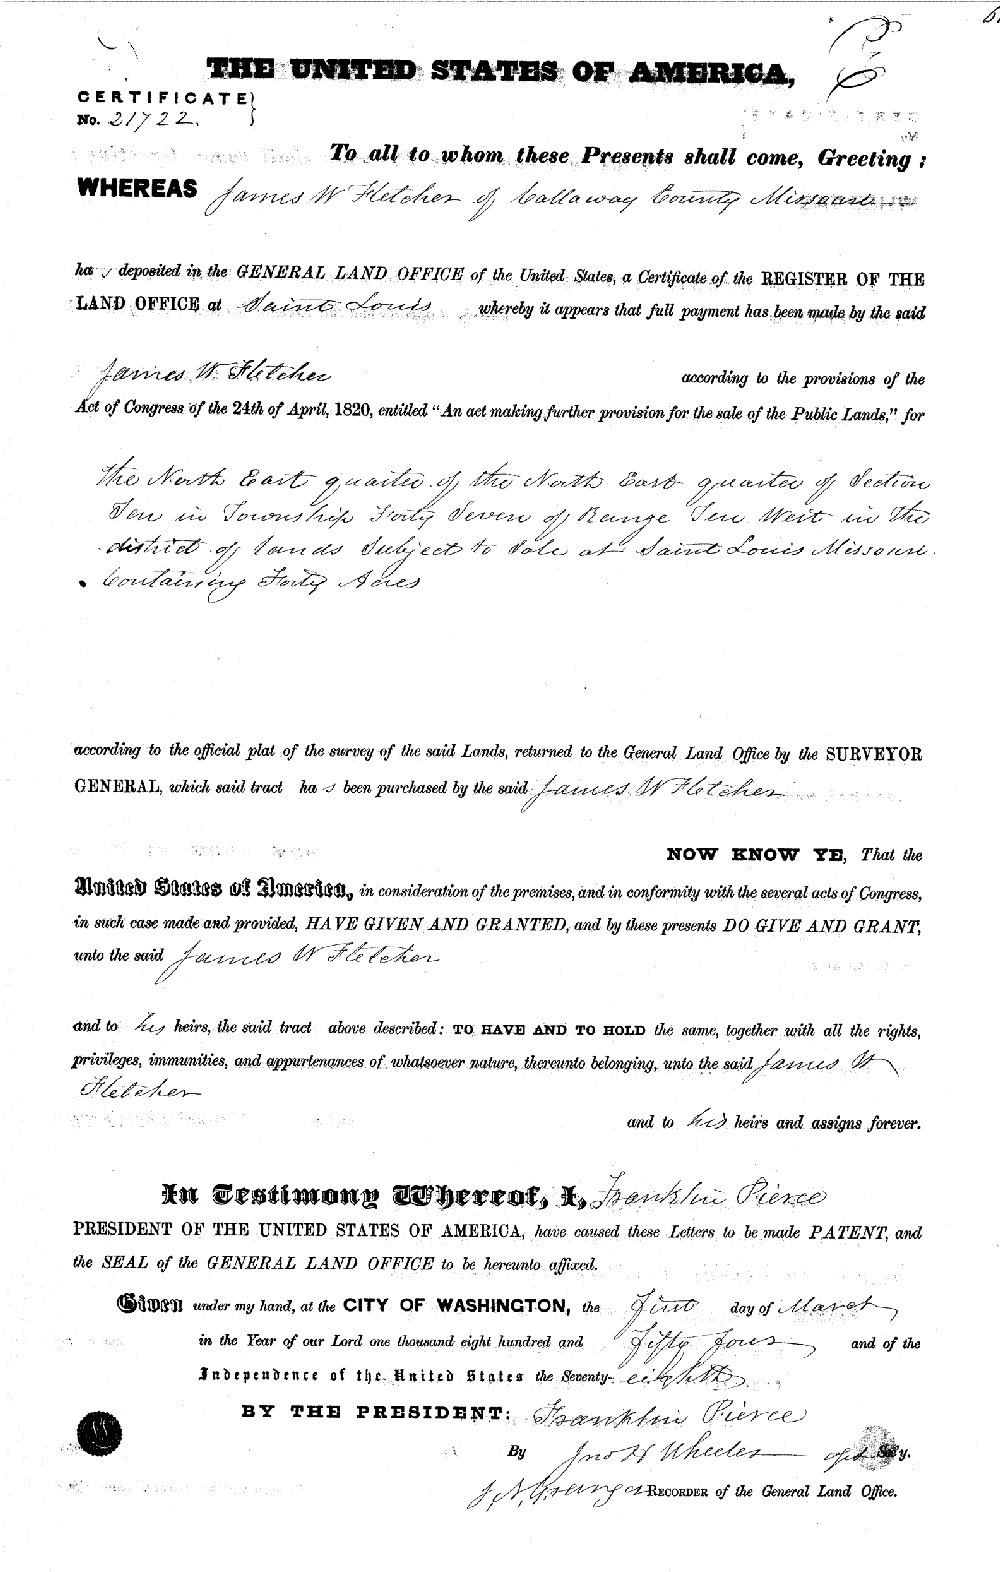 THE UNITED STATES OF AMERICA,
CERTIFICATE
No. 21722.
To all to whom these Presents shall come, Greeting:
WHEREAS James W Fletcher of Callaway County Missouri
ha s deposited in the GENERAL LAND OFFICE of the United States, a Certificate of the REGISTER OF THE
LAND OFFICE at Saint Louis whereby it appears that full payment has been made by the said
James W. Fletcher according to the provisions of the
Act of Congress of the 24th of April, 1820, entitled "An act making further provision for the sale of the Public Lands," for
the North East quarter of the North East quarter of Section
Ten in Township Forty Seven of Range Ten West in the
district of lands Subject to Sale at Saint Louis Missouri.
Containing Forty Acres
according to the official plat of the survey of the said Lands, returned to the General Land Office by the SURVEYOR
GENERAL, which said tract ha s been purchased by the said James W Fletcher
NOW KNOW YE, That the
United States of America, in consideration of the premises, and in conformity with the several acts of Congress,
in such case made and provided, HAVE GIVEN AND GRANTED, and by these presents DO GIVE AND GRANT,
unto the said James W Fletcher
and to his heirs, the said tract above described: TO HAVE AND TO HOLD the same, together with all the rights,
privileges, immunities, and appurtenances of whatsoever nature, thereunto belonging, unto the said James W
Fletcher
and to his heirs and assigns forever.
In Testimony Whereof, I, Franklin Pierce
PRESIDENT OF THE UNITED STATES OF AMERICA, have caused these Letters to be made PATENT, and
the SEAL of the GENERAL LAND OFFICE to be hereunto affixed.
Given under my hand, at the CITY OF WASHINGTON, the first day of March
in the Year of our Lord one thousand eight hundred and fifty four and of the
Independence of the United States the Seventy-eighth
BY THE PRESIDENT: Franklin Pierce
By Jno H Wheeler Sec'y.
J N Granger RECORDER of the General Land Office.